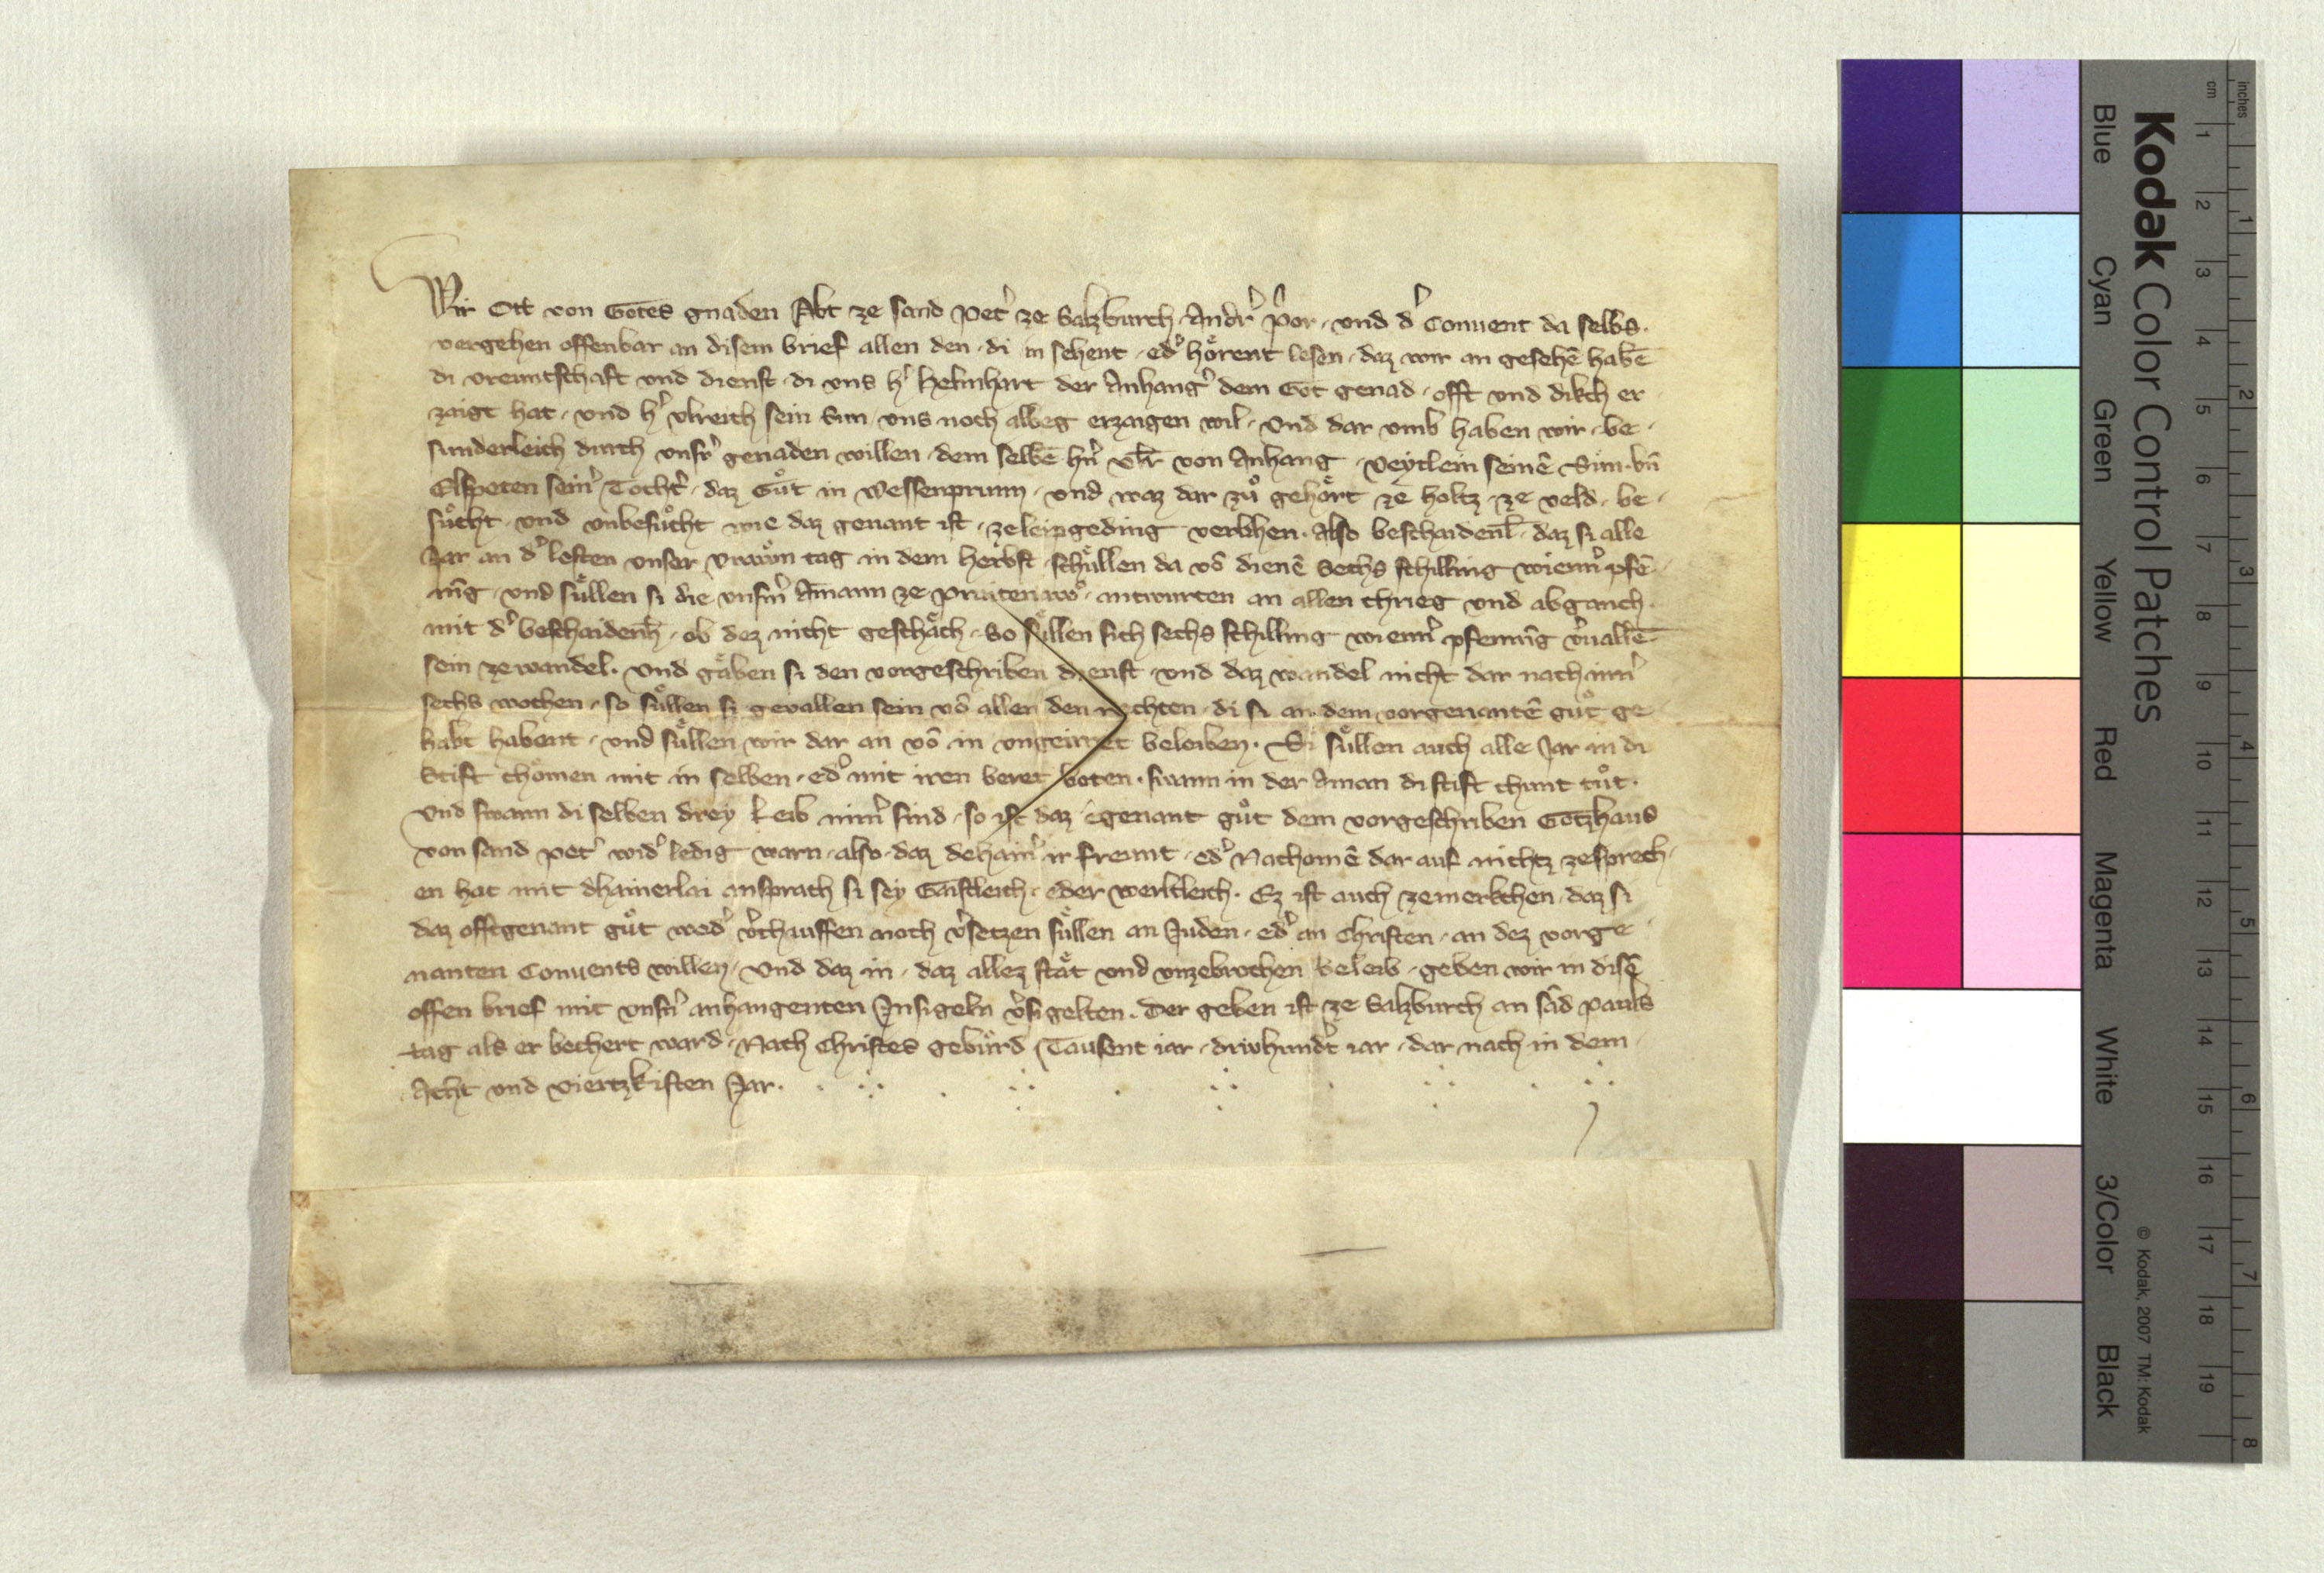 Wir Ott von Gotes gnaden Abt ze sand Pet͛ ze Salzburch · Andr͛ p͛or · vnd d͛ Conuent da selbs ·
vergehen offenbar an disem brief allen den · di in sehent · ed͛ hoͤrent lesen · daz wir an gesehē habē
di vreuntschaft vnd dienst · di vns h͛ Helmhart der Anhang͛ dem Got genad · offt vnd dikch er
zaigt hat · vnd h͛ vlreich sein Sun · vns noch allbeg erzaigen wil · Vnd dar vmb haben wir · be ·
sunderleich durch vnsr͛ genaden willen · dem selbē hn͛ vlr̄ von Anhang · Veytlein seinē Sūn · vn̄
Elspeten sein͛ Tocht͛ · daz Guͦt in Wessenprunn · vnd waz dar zuͦ gehoͤrt ze holtz · ze veld · be ·
suͦcht · vnd vnbesuͦcht wie daz genant ist · ze leipgeding verlihen · Also beschaidenl̄ · daz si alle
Jar an d͛ lesten vnser vrawn tag in dem Herbst · schuͤllen da vō dienē Sechs schilling wienn͛ pfē
nīg · vnd suͤllen si die vnsm͛ Amann ze · antwurten an allen chrieg vnd abganch ·
mit d͛ beschaidenh̄ · ob dez nicht geschaͤch · So suͤllen sich sechs schilling wienn͛ pfennīg v͛uallē
sein ze wandel · Vnd gaͤben si den vorgeschriben dienst · vnd daz wandel nicht dar nach inn͛
sechs wochen · so suͤllen si geuallen sein vō allen den rechten · di si an dem vorgenantē guͦt ge
habt habent · vnd suͤllen wir dar an vō in vngeirret beleiben · Si suͤllen auch alle Jar in di
Stift choͤmen mit in selben · ed͛ mit iren beten · swann in der Aman di stift chunt tuͦt ·
Vnd swann di selben drey Leib nim͛ sind · so ist daz egenant guͦt dem vorgeschriben Gotzhaus
von sand pet͛ wid͛ ledig warn · also · daz dehain͛ ir freunt · ed͛ Nachomē dar auf nichtz ze sprech ·
en hat mit dhainerlai ansprach si sey Gaistleich · oder werltleich · Ez ist auch ze merkchen · daz si
daz offtgenant guͦt wed͛ v͛chauffen noch v͛setzen suͤllen an Juden · ed͛ an Christen · an dez vorge ·
nanten Conuents willen · Vnd daz in · daz allez staͤt vnd vnzebrochen beleib · geben wir in disē
offen brief mit vnsn͛ anhangenten Jnsigeln v͛sigelten · Der geben ist ze Salzburch an sād pauls
tag als er bechert ward · Nach Christes gebuͤrd Tausent iar · driuhund͛t iar · dar nach in dem ·
Acht vnd viertzkisten Jar ·
Kodak Color Control Patches
Blue Cyan Green Yellow Red Magenta White 3/Color Black
© Kodak, 2007 TM: Kodak
inches 1 2 3 4 5 6 7 8
cm 1 2 3 4 5 6 7 8 9 10 11 12 13 14 15 16 17 18 19